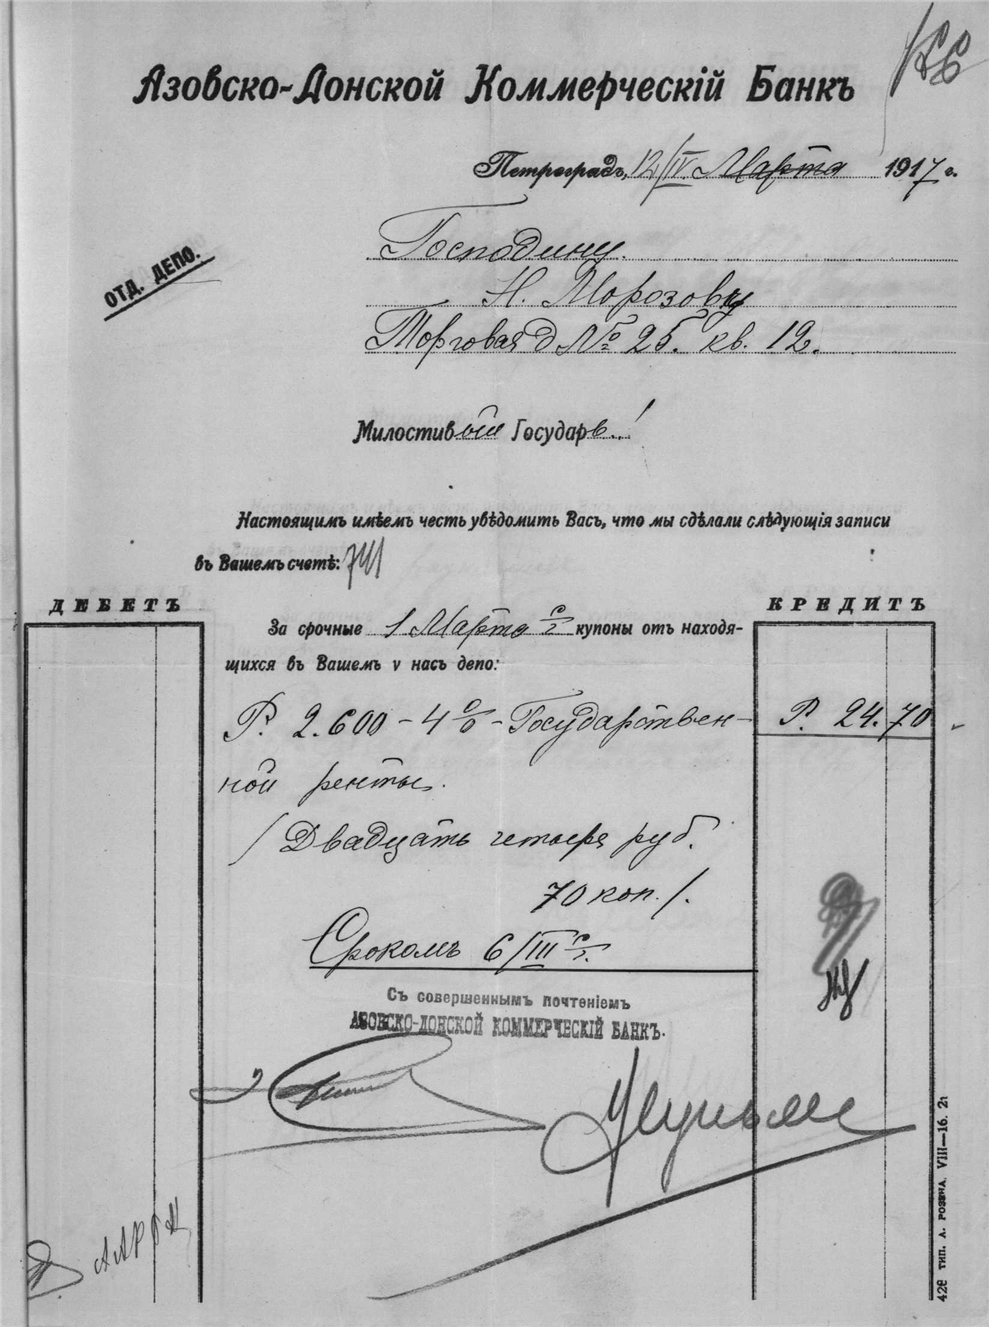 Азовско-Донской Коммерческій Банкъ
Петроградъ, 12/IV Марта 1917 г.
ОТД. ДЕПО.
Господину
Н. Морозову
Торговая д № 25. кв. 12.
Милостивый Государь!
Настоящимъ имѣемъ честь увѣдомить Васъ, что мы сдѣлали слѣдующія записи
въ Вашемъ счетѣ: 741
ДЕБЕТЪ
КРЕДИТЪ
За срочные 1 Марта с/г купоны отъ находя-
щихся въ Вашемъ у насъ депо:
Р. 2.600 - 4% - Государствен- Р. 24.70
ной ренты.
/Двадцать четыре руб.
70 коп./.
Срокомъ 6/III с/г.
Съ совершеннымъ почтеніемъ
АЗОВСКО-ДОНСКОЙ КОММЕРЧЕСКІЙ БАНКЪ.
428 ТИП. А. РОЗЕНА. VIII—16. 2т